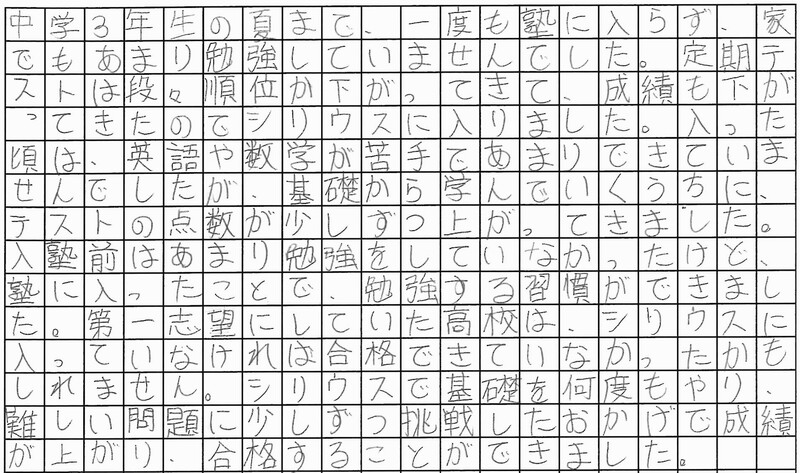 中学3年生の夏まで、一度も塾に入らず、家
でもあまり勉強していませんでした。定期テ
ストは段々順位が下がってきて、成績も下が
ってきたのでシリウスに入りました。入った
頃は、英語や数学が苦手であまりできていま
せんでしたが、基礎から学んでいくうちに、
テストの点数が少しずつ上がってきました。
入塾前はあまり勉強をしていなかったけど、
塾に入ったことで、勉強する習慣ができまし
た。第一志望にしていた高校は、シリウスに
入っていなければ合格できていなかったかも
しれません。シリウスで基礎を何度もやり、
難しい問題に少しずつ挑戦したおかげで成績
が上がり、合格することができました。